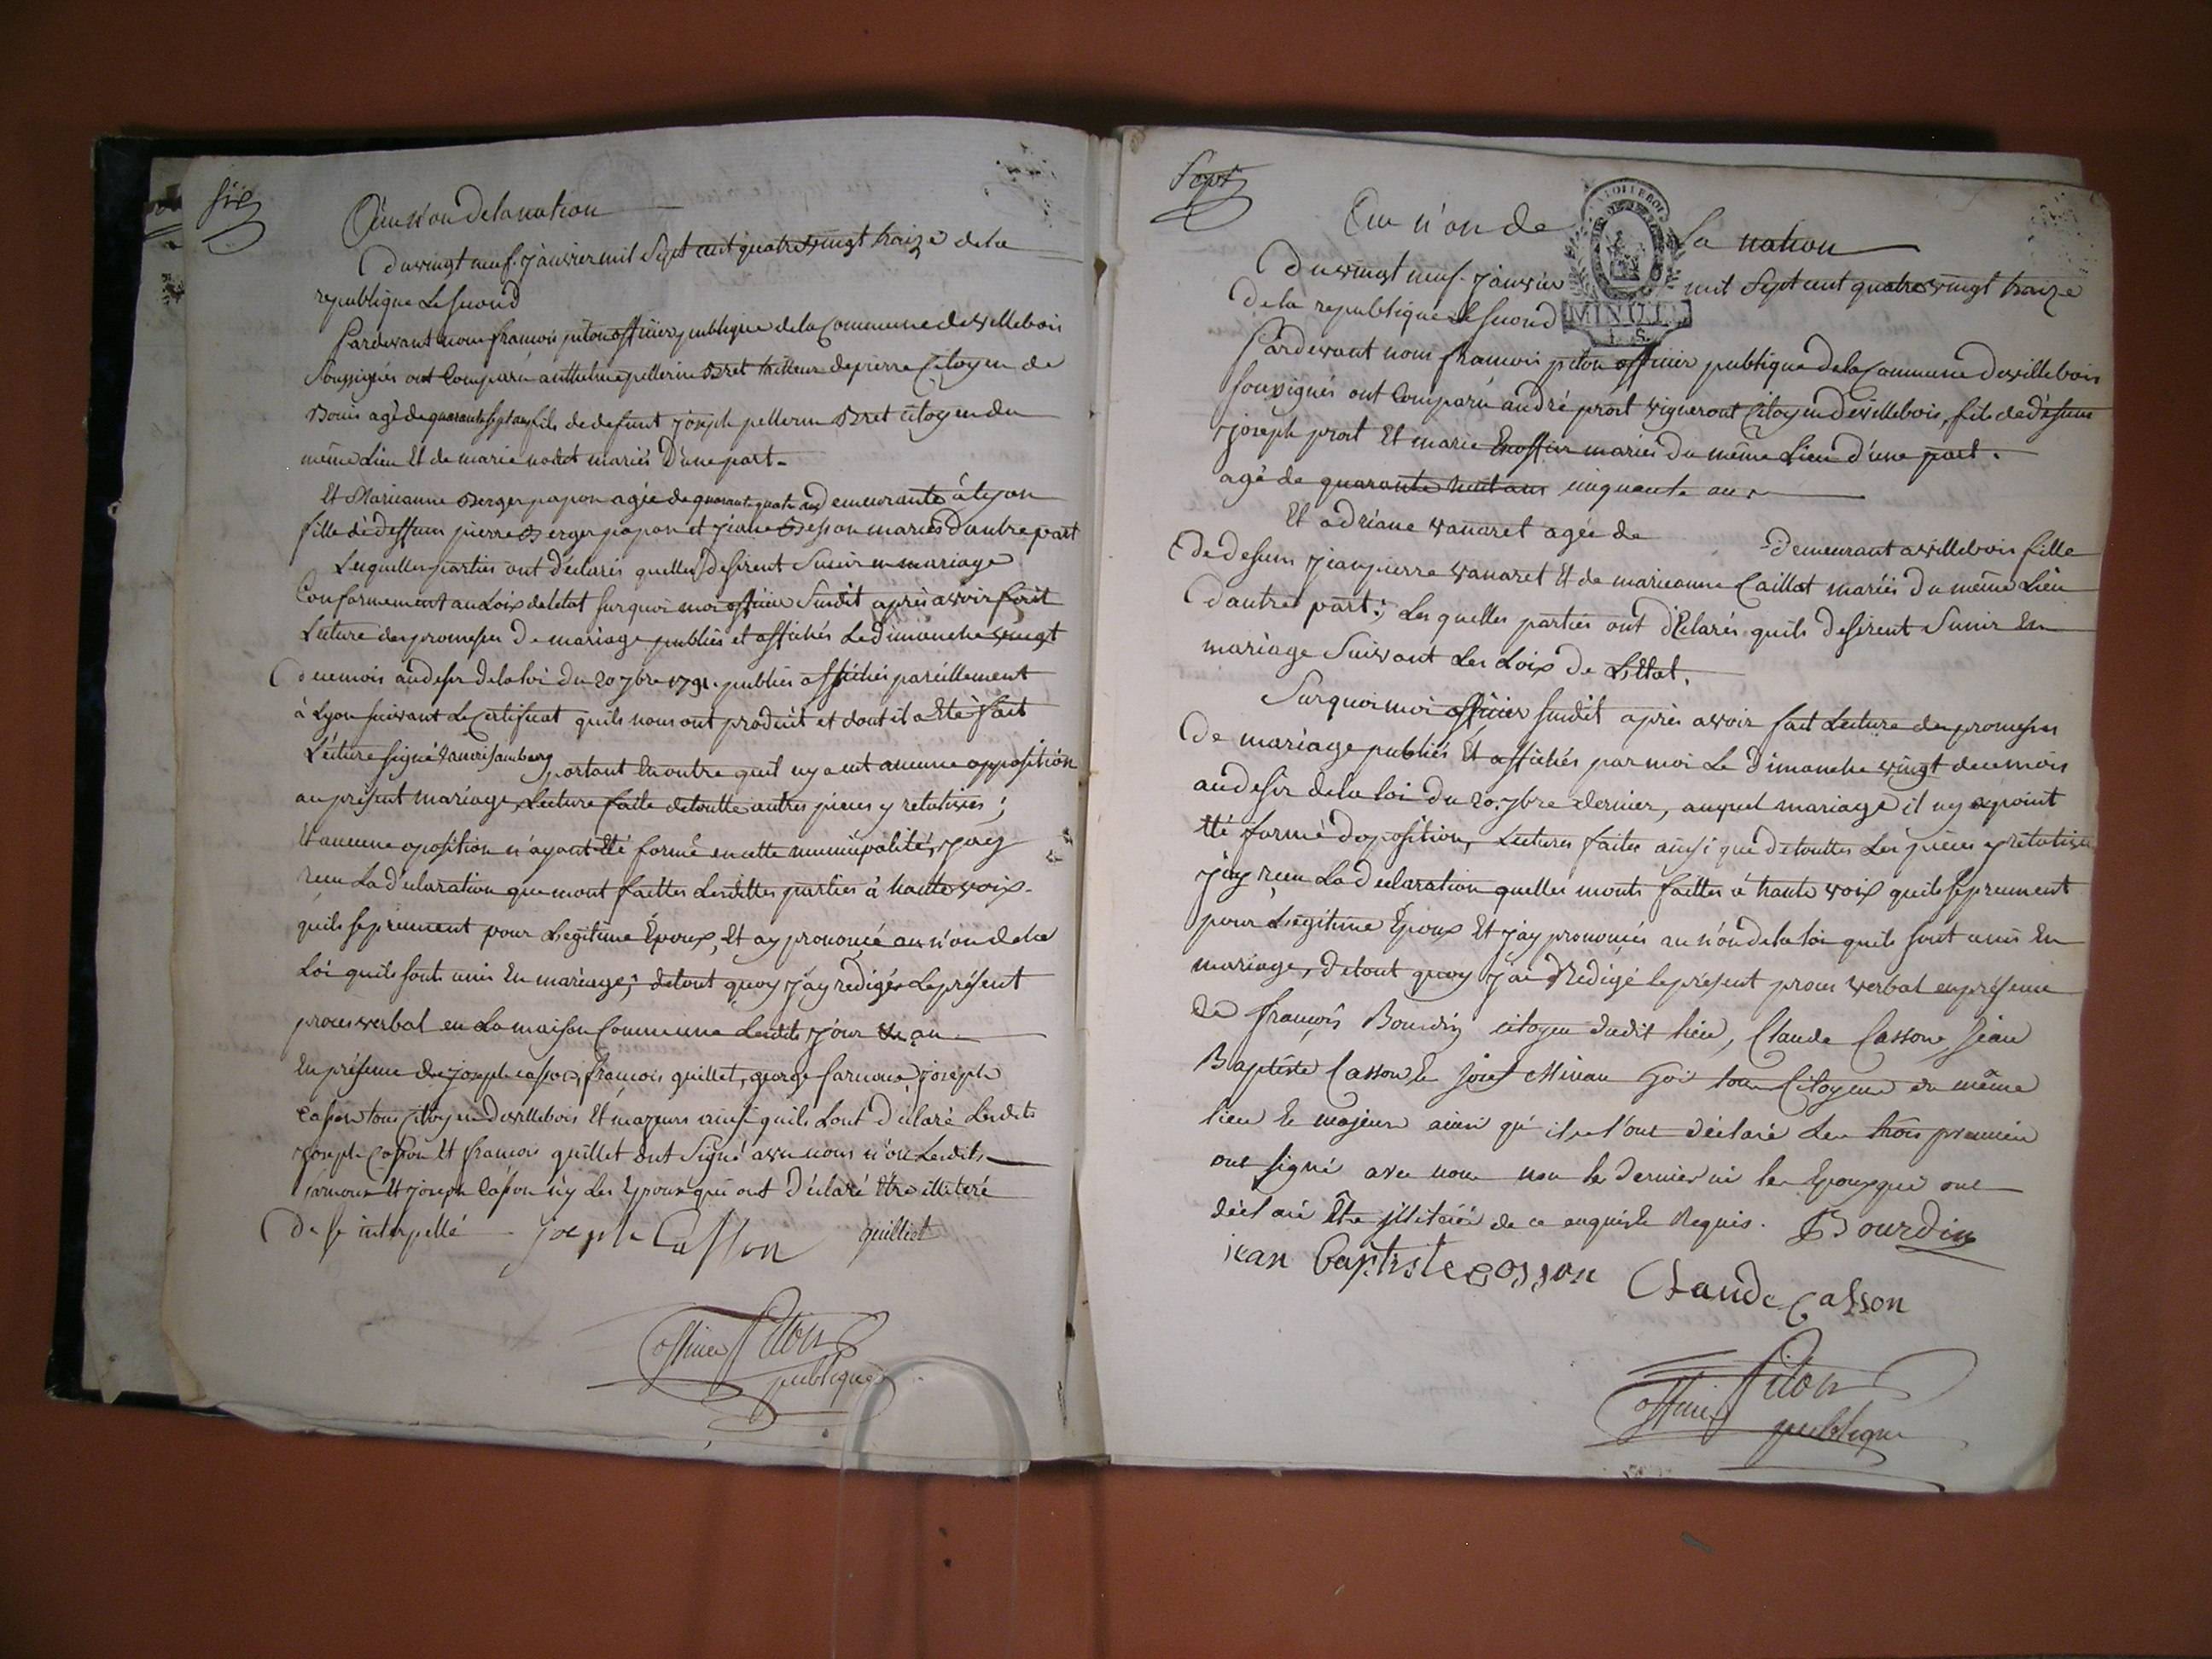 six
Au n'on de la nation
Du vingt neuf janvier mil sept cent quatre vingt traize de la
republique Le second
Pardevant nous françois piton officier publique de la Commune de villebois
soussignés ont Comparu anthelme pellerin Bret tailleur de pierre Citoyen de
Bouis agé de quarante sept ans fils de defunt joseph pellerin Bret citoyen du
même Lieu Et de marie nodet mariés D'une part.
Et Marieanne Berger papon agée de quarante quatre ans demeurante à Lyon
fille de deffunts pierre Berger papon et jeane Besson mariés d'autre part
Lesquelles parties ont déclarés quelles desirent s'unir en mariage
Conformement au Loix de letat sur quoi moi officier susdit après avoir fait
Lecture des promesses de mariage publiés et affichés Le dimanche vingt
du mois au desir de la loi du 20 7bre 1792. publiés affichés pareillement
à Lyon suivant Le Certificat quils nous ont produit et dont il a Eté fait
Lecture signé portant En outre quil ny a eut aucune opposition
au présent mariage, Lecture faite de toutte autres pieces y relatives ;
Et aucune oposition n'ayant Eté formé en cette municipalité, j'ay
reçu La déclaration que mont faittes Lesdittes parties à haute voix
quils se prennent pour Legitime Époux, Et ay prononcé au n'on de la
Loi quils sont unis En mariage ; de tout quoy j'ay redigés Le présent
proces verbal en La maison Commune Lesdits jour Et an
En présence de joseph casson, françois guillet, george sarnoux, joseph
casson tous citoyen de villebois Et majeurs ainsi quils Lont déclaré Lesdits
joseph Casson Et francois guillet ont Signé avec nous n'on Lesdits
sarnoux Et joseph Casson n'y Les Epoux qui ont déclaré Etre illiteré
De ce interpellé
joseph Casson
guilliet
Piton
officier
publique
sept
Au n'on de la nation
Du vingt neuf janvier mil Sept cent quatre vingt traize
De la republique Le second
MINUTE
Pardevant nous françois piton officier publique de la Commune de villebois
sousignés ont Comparu andré prost vigneront Citoyen de villebois, fils de défunt
joseph prost Et marie mariés du même Lieu d'une part.
agé de quarante huit ans cinquante ans
Et adriane vanaret agée de demeurant a villebois fille
De defunts jean pierre vanaret Et de marieanne Caillat mariés du même Lieu
D'autre part ; Les quelles parties ont déclarés quils desirent s'unir En
mariage Suivant Les Loix de L'Etat.
Sur quoi moi officier susdit après avoir fait Lecture des promesses
De mariage publiés Et affichés par moi Le dimanche vingt du mois
au desir de la loi du 20. 7bre dernier, auquel mariage il ny a point
Eté formé doposition, Lectures faites ainsi que de touttes Les pieces y relatives
j'ay reçu La déclaration quelles monts faittes à haute voix quils se prennent
pour Légitime Époux Et j'ay prononcés au n'on de la loi quils sont unis En
mariage, de tout quoy j'ai Rédigé le présent proces verbal en présence
de françois Bourdin citoyen dudit lieu, Claude Casson, jean
Baptiste Casson tous Citoyens du même
lieu & majeurs ainsi qu'ils l'ont déclaré Les trois premiers
ont signé avec nous non le dernier ni les Epoux qui ont
déclaré Être illiterés de ce enquis & Requis.
Bourdin
jean Baptiste cosson
Claude Casson
Piton
officier
publique